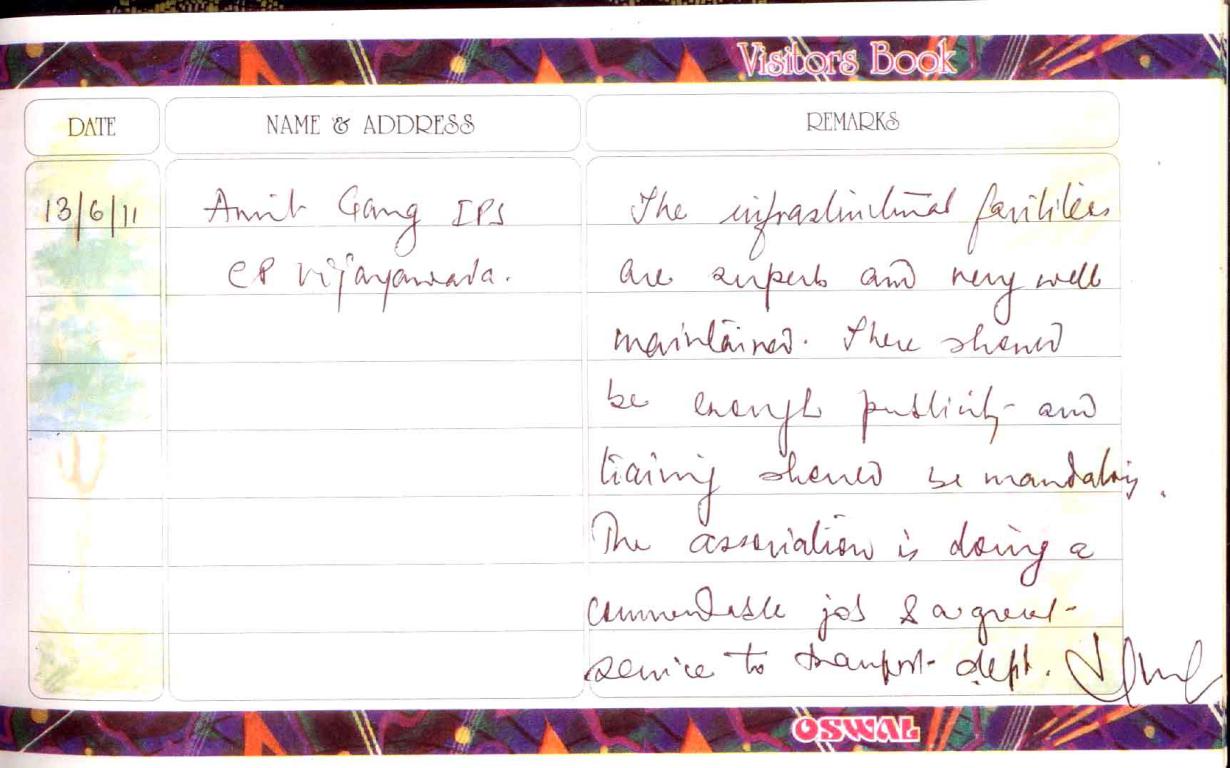 Visitors Book
DATE NAME & ADDRESS REMARKS
13/6/11 Amit Garg IPS The infrastructural facilities
CP Vijayawada. are superb and very well
maintained. There should
be enough publicity and
training should be mandatory.
The association is doing a
commendable job & a great
service to transport dept.
OSWAL